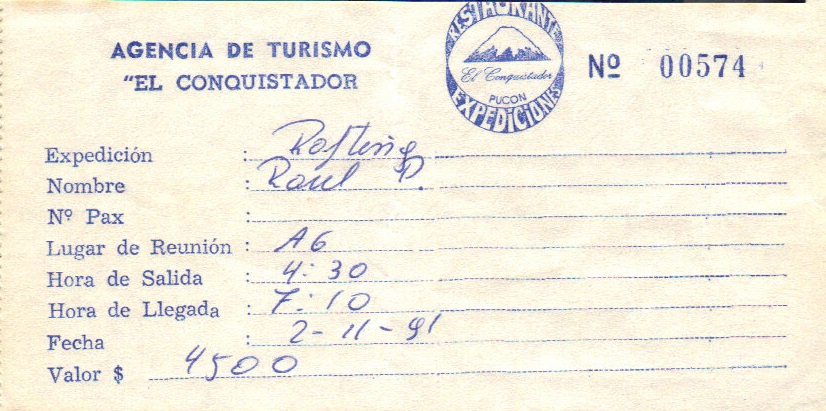 AGENCIA DE TURISMO
"EL CONQUISTADOR
RESTAURANTE
El Conquistador
PUCON
EXPEDICIONES
Nº 00574
Expedición : Rafting
Nombre : Raul P.
Nº Pax :
Lugar de Reunión : AG
Hora de Salida : 4:30
Hora de Llegada : 7:10
Fecha : 2-11-91
Valor $ 4500